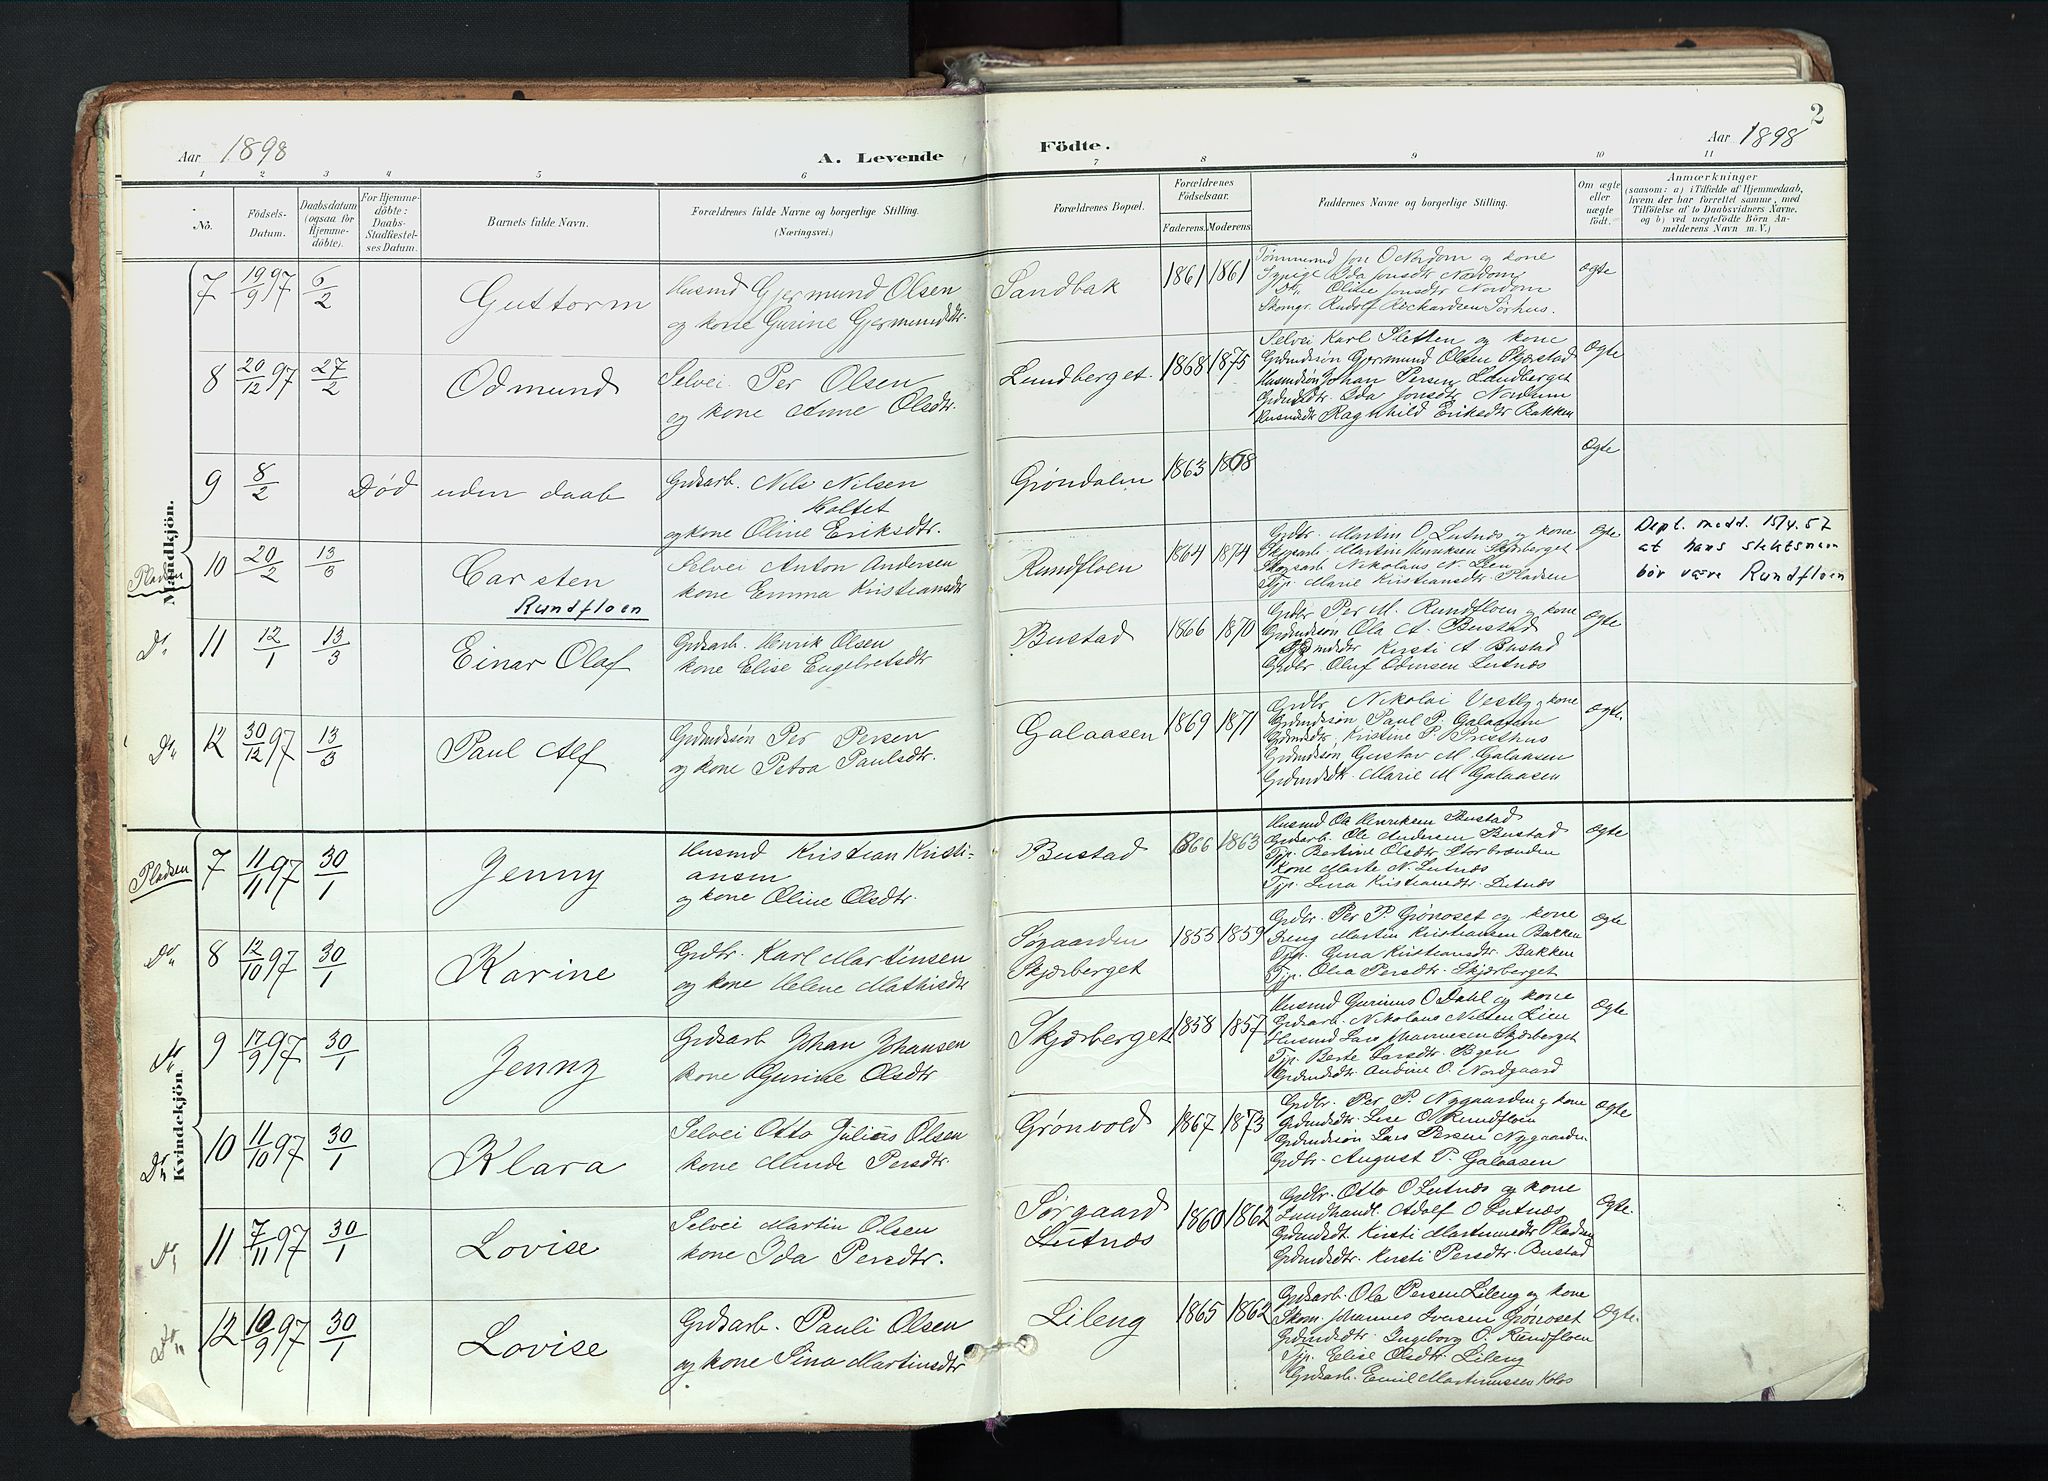 Aar 1898 A. Levende Födte. Aar 1898 2
1 2 3 4 5 6 7 8 9 10 11
No. Födsels-Datum. Daabsdatum (ogsaa for Hjemmedöbte). For Hjemmedöbte: Daabs-Stadfæstelses Datum. Barnets fulde Navn. Forældrenes fulde Navne og borgerlige Stilling. (Næringsvei.) Forældrenes Bopæl. Forældrenes Födselsaar. Faderens. Moderens. Faddernes Navne og borgerlige Stilling. Om ægte eller uægte födt. Anmærkninger (saasom: a) i Tilfælde af Hjemmedaab, hvem der har forrettet samme, med Tilföielse af to Daabsvidners Navne, og b) ved uægtefödte Börn Anmelderens Navn m. V.)
Mandkjön.
7 19/9 97 6/2 Guttorm Husmd Gjermund Olsen
og kone Gurine Gjermundsdtr. Sandbak 1861 1861 Tømmermd Jon O Nordom og kone
Ida Jonsdtr Nordom
Oline Jonsdtr Nordom
Skomgr. Rudolf Rickardsen Sörhus. Ægte
8 20/12 97 27/2 Odmund Selvei. Per Olsen
og kone Anne Olsdtr. Lundberget. 1868 1875 Selvei Karl Sletten og kone
Grdmdssön Gjermund Olsen Skjæstad
Husmdsön Johan Persen Lundberget
Grdmdsdtr. Ida Jonsdtr Nordum
Husmdsdtr Ragnhild Eriksdtr Bakken Ægte
9 8/2 Død uden daab Grdsarb. Nils Nilsen
Holtet
og kone Oline Eriksdtr. Grøndalen 1863 1868 Ægte
Pladsen
10 20/2 13/3 Carsten
Rundfloen Selvei Anton Andersen
kone Emma Kristiansdtr Rundfloen 1864 1874 Grdbr. Martin O Lutnæs og kone
Skogsarb. Martin Henriksen Skjærberget
Skogsarb Nikolaus N. Lien
Tjp. Marie Kristiansdtr Pladsen Ægte Depl. medd. 15/4.57
at hans slektsnavn
bör være Rundfloen
Do
11 12/1 13/3 Einar Olaf Grdsarb. Henrik Olsen
kone Elise Engebretsdtr Bustad 1866 1870 Grdbr Per M. Rundfloen og kone
Grdmdssön Ola A. Bustad
Kirsti A. Bustad
Grdbr. Oluf Odensen Lutnæs Ægte
Do
12 30/12 97 13/3 Paul Alf Grdmdssön Per Persen
og kone Petra Paulsdtr. Galaasen 1869 1871 Grdbr Nikolai Vestby og kone
Grdmdssön Paul P. Galaasen
Grdmdsdtr. Kristine P. Presthus
Grdmdssön Gustav M. Galaasen
Grdmdsdtr. Marie M Galaasen Ægte.
Kvindekjön
Pladsen
7 11/11 97 30/1 Jenny Husmd Kristian Kristi-
ansen
og kone Oline Olsdtr. Bustad 1866 1863 Husmd Ola Henriksen Bustad
Grdsarb. Ole Andersen Bustad
Tjp. Bertine Olsdtr Storbrænden
Kone Marte N. Lutnæs
Tjp. Lina Kristiansdtr. Lutnæs Ægte
Do
8 12/10 97 30/1 Karine Grdbr. Karl Martinsen
og kone Helene Mathisdtr Søgaarden
Skjærberget 1855 1859 Grdbr. Per P. Grønoset og kone
Dreng Martin Kristiansen Bakken
Tjp. Gina Kristiansdtr. Bakken
Tjp. Olia Persdtr. Skjærberget Ægte
Do
9 17/9 97 30/1 Jenny Grdsarb Johan Johansen
kone Gurine Olsdtr Skjærberget 1858 1857 Husmd Gurinus O Dahl og kone
Grdsarb. Nikolaus Nilsen Lien
Husmd Lars Johannesen Skjærberget
Tjp. Berte Larsdtr. Byen
Grdmdsdtr Andine O. Nordgaard Ægte
Do
10 11/10 97 30/1 Klara Selvei Otto Julius Olsen
kone Minde Persdtr. Grönvold 1867 1873 Grdbr. Per P. Nygaarden og kone
Grdmdsdtr. Lise O. Rundfloen
Grdmdssön Lars Persen Nygaarden
Grdbr. August P. Galaasen Ægte
Do
11 7/11 97 30/1 Lovise Selvei Martin Olsen
kone Ida Persdtr. Sørgaard
Lutnæs 1860 1862 Grdbr. Otto O Lutnæs og kone
Landhandl. Adolf O Lutnæs
Grdmdsdt. Kirsti Martinusdtr Pladsen
Grdmdsdtr. Kirsti Persdtr. Bustad Ægte.
Do
12 10/9 97 30/1 Lovise Grdsarb. Pauli Olsen
og kone Sina Martinsdtr Lileng 1865 1862 Grdsarb. Ola Persen Lileng og kone
Skom. Johannes Iversen Grønoset
Grdmdsdtr. Ingeborg O. Rundfloen
Tjp. Elise Olsdtr. Lileng
Grdsarb. Emil Martinussen Kolos Ægte.